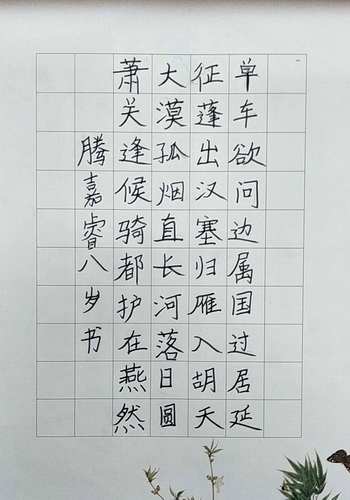 单车欲问边属国过居延
征蓬出汉塞归雁入胡天
大漠孤烟直长河落日圆
萧关逢候骑都护在燕然
腾嘉睿八岁书